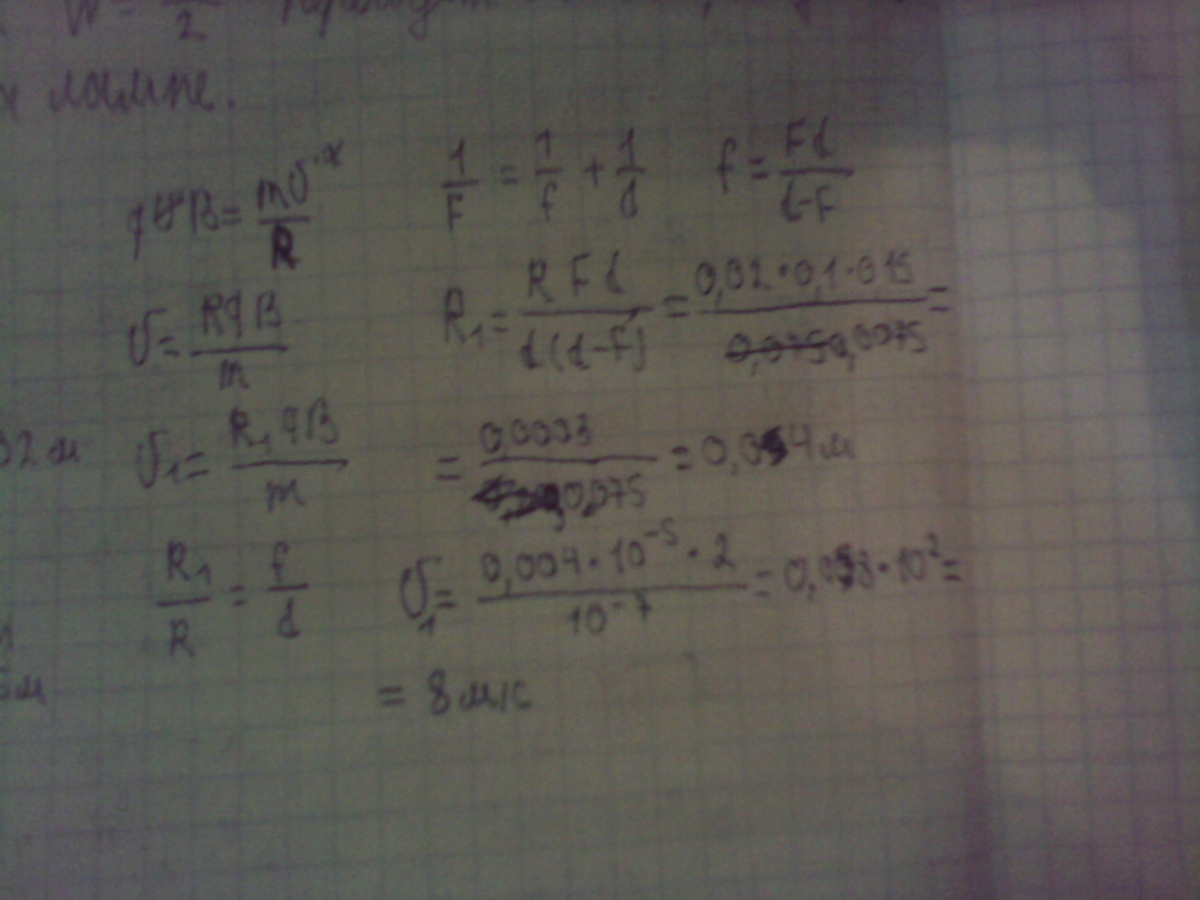 W = /2
х лампе.
qυB = mυ²/R
1/F = 1/f + 1/d f = Fd/d-F
υ = RqB/m
R₁ = R F d/d(d-F) = 0,02·0,1·0,15/0,0075 =
02 м
υ₁ = R₁qB/m
= 0,0003/0,0075 = 0,04 м
R₁/R = f/d
υ₁ = 0,004·10⁻⁵·2/10⁻⁷ = 0,08·10² =
м
= 8 м/с